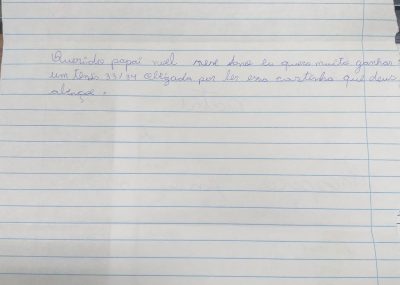 Querido papai noel nese ano eu quero muito ganhar
um tenis 33/34 obigada por ler essa cartinha que deus
abençoe.